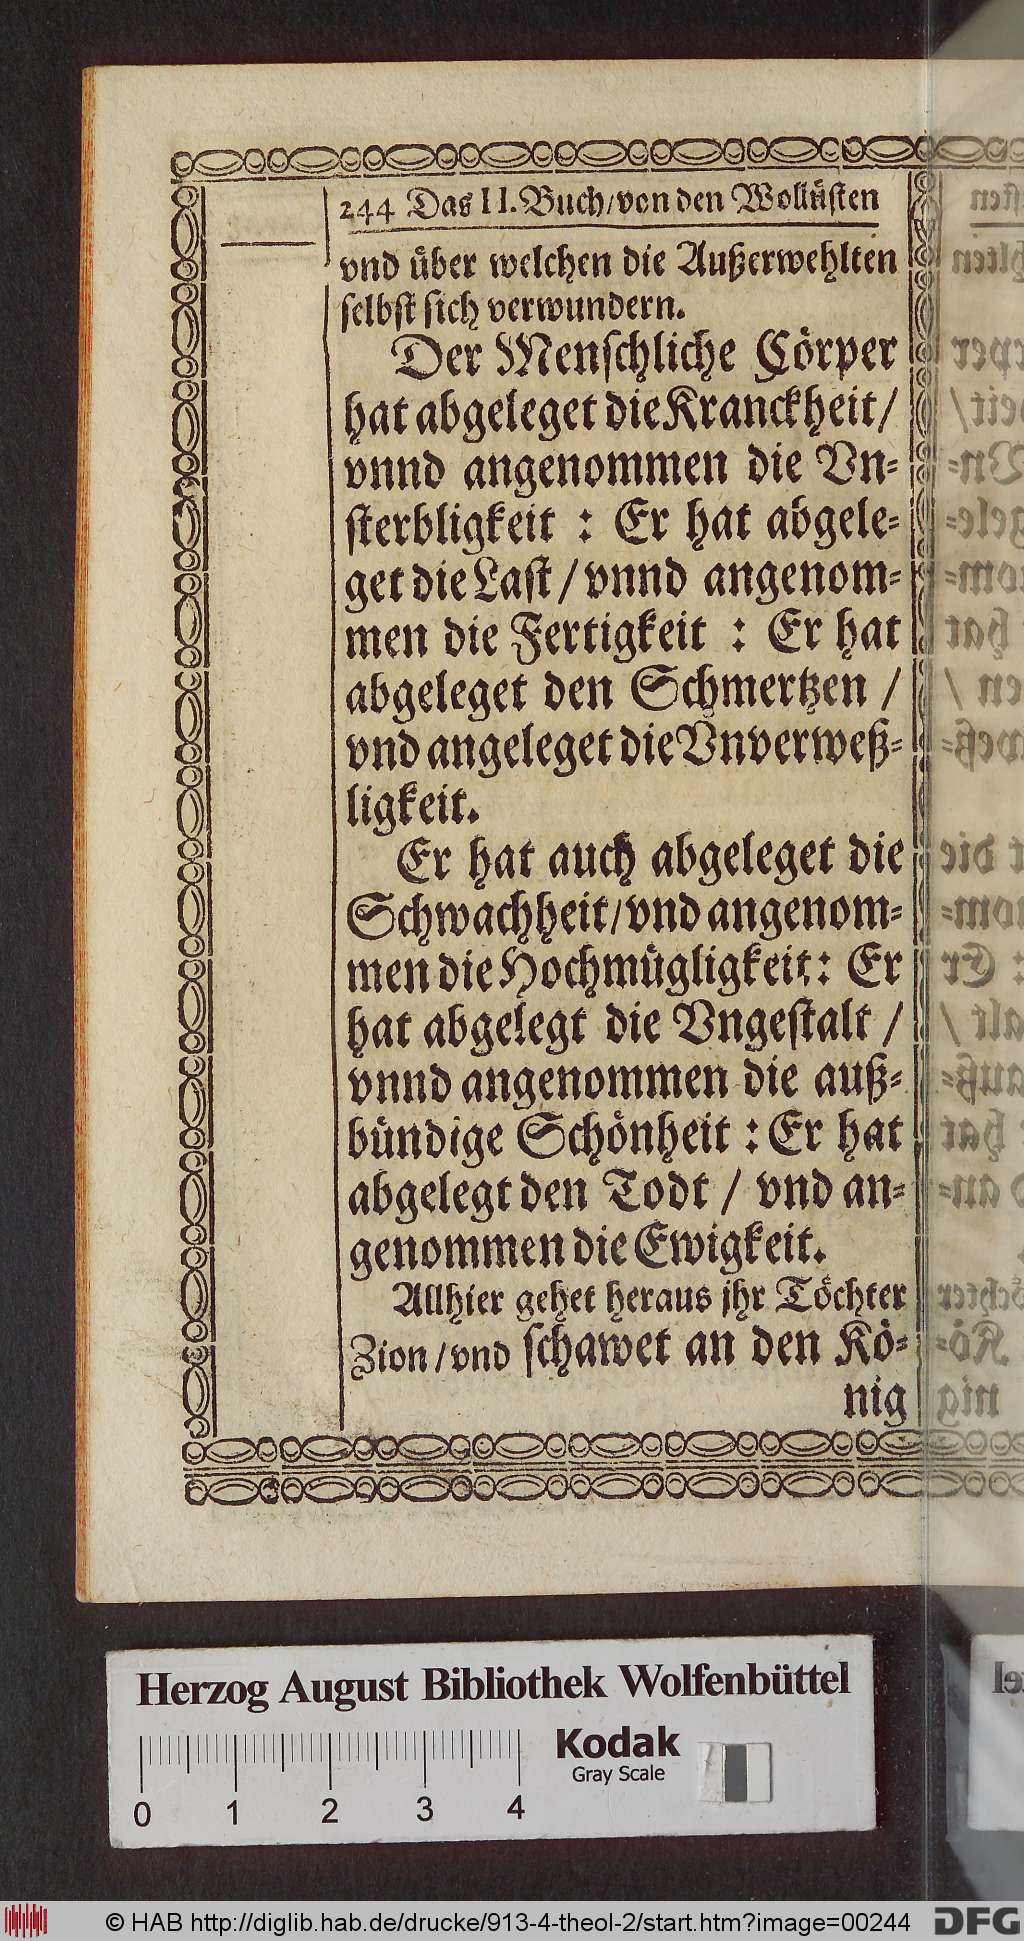 244 Das II. Buch/von den Wollüsten
vnd über welchen die Außerwehlten
selbst sich verwundern.
Der Menschliche Cörper
hat abgeleget die Kranckheit/
vnnd angenommen die Vn-
sterbligkeit : Er hat abgele-
get die Last / vnnd angenom-
men die Fertigkeit : Er hat
abgeleget den Schmertzen /
vnd angeleget die Vnverweß-
ligkeit.
Er hat auch abgeleget die
Schwachheit/vnd angenom-
men die Hochmügligkeit: Er
hat abgelegt die Vngestalt /
vnnd angenommen die auß-
bündige Schönheit : Er hat
abgelegt den Todt / vnd an-
genommen die Ewigkeit.
Allhier gehet heraus jhr Töchter
Zion/vnd schawet an den Kö-
nig
Herzog August Bibliothek Wolfenbüttel
Kodak
Gray Scale
0 1 2 3 4
© HAB http://diglib.hab.de/drucke/913-4-theol-2/start.htm?image=00244
DFG